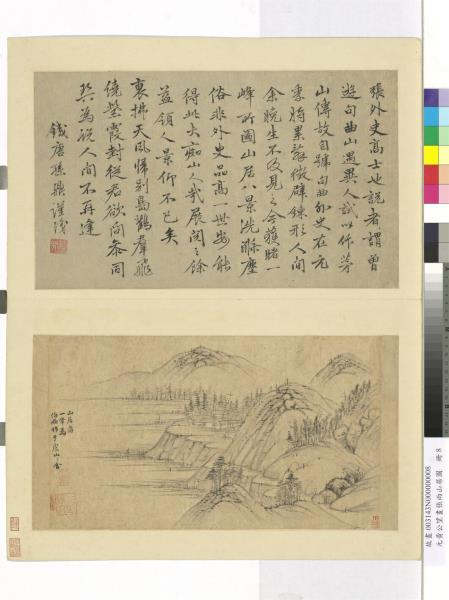 張外史高士也說者謂曾
遊句曲山遇異人試以作茅
山傳故自號句曲外史在元
季時累辭徵辟鍊形人間
余晚生不及見之今獲睹一
峰所圖山居八景洗滌塵
俗非外史品高一世安能
得此大癡山人哉展閱之餘
益領人景仰不已矣
裏拂天風歸別島鶴羣飛
繞瑩霞封從君欲問參同
契為說人間不再逢
錢唐孫鼎謹
山居
一峯為
伯雨作于山舍
故畫 003143N000000008
元黃公望畫張雨山居圖 冊 8